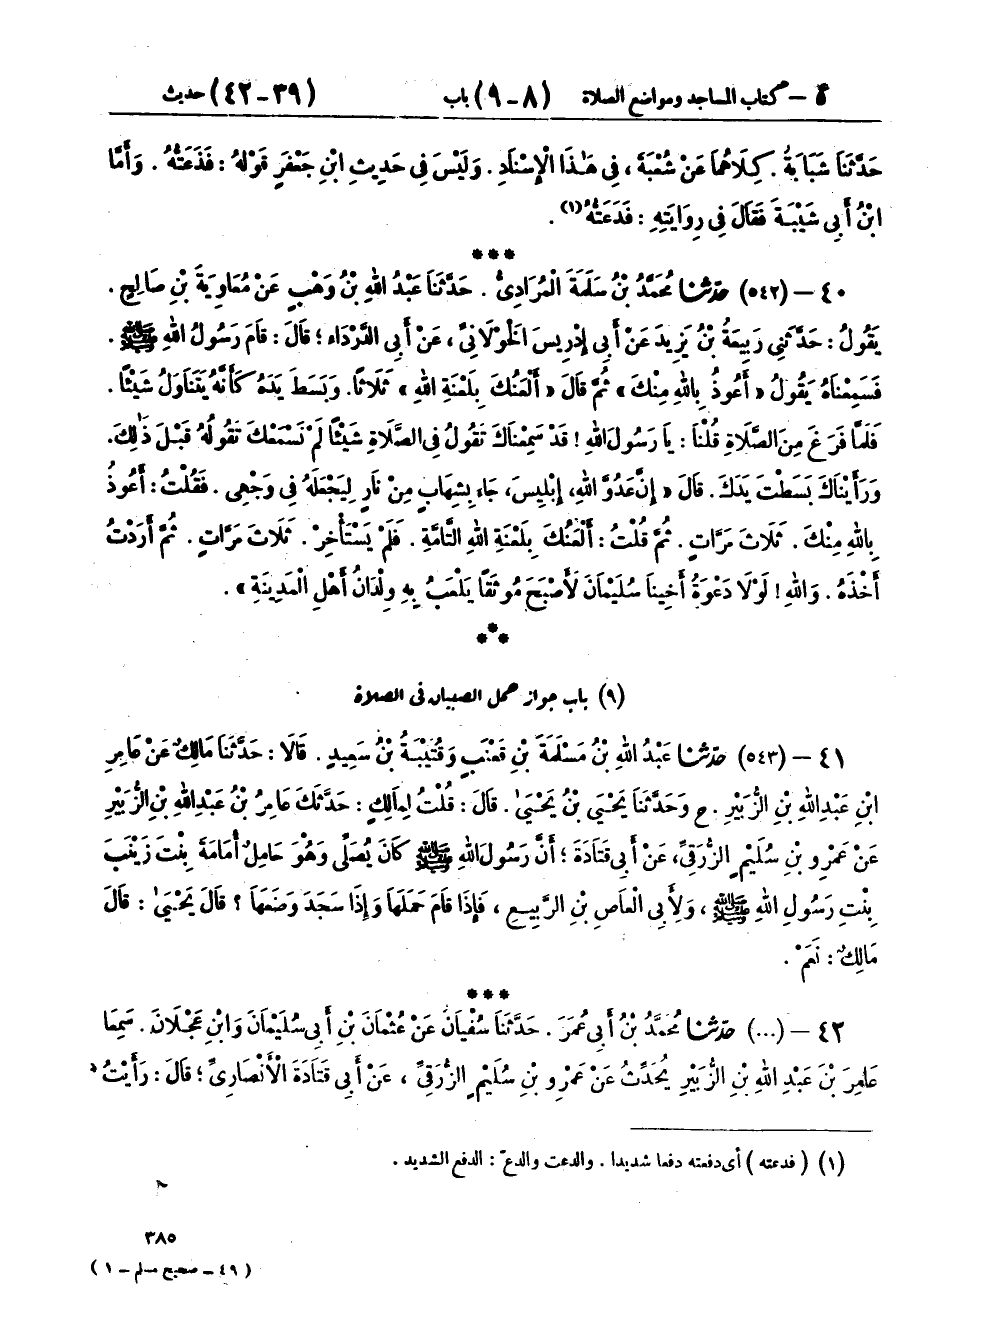 ٥ – كتاب المساجد ومواضع الصلاة (٨ – ٩) باب (٣٩ – ٤٢) حديث
حَدَّثَنَا شَبَابَةُ . كِلَاهُمَا عَنْ شُعْبَةَ ، فِي هٰذَا الْإِسْنَادِ . وَلَيْسَ فِي حَدِيثِ ابْنِ جَعْفَرٍ قَوْلُهُ : فَذَعَتُّهُ . وَأَمَّا
ابْنُ أَبِي شَيْبَةَ فَقَالَ فِي رِوَايَتِهِ : فَدَعَتُّهُ(١) .
***
٤٠ – (٥٤٢) حَدَّثَنَا مُحَمَّدُ بْنُ سَلَمَةَ الْمُرَادِيُّ . حَدَّثَنَا عَبْدُ اللهِ بْنُ وَهْبٍ عَنْ مُعَاوِيَةَ بْنِ صَالِحٍ .
يَقُولُ : حَدَّثَنِي رَبِيعَةُ بْنُ يَزِيدَ عَنْ أَبِي إِدْرِيسَ الْخَوْلَانِيِّ ، عَنْ أَبِي الدَّرْدَاءِ ؛ قَالَ : قَامَ رَسُولُ اللهِ ﷺ .
فَسَمِعْنَاهُ يَقُولُ « أَعُوذُ بِاللهِ مِنْكَ » ثُمَّ قَالَ « أَلْعَنُكَ بِلَعْنَةِ اللهِ » ثَلَاثًا . وَبَسَطَ يَدَهُ كَأَنَّهُ يَتَنَاوَلُ شَيْئًا .
فَلَمَّا فَرَغَ مِنَ الصَّلَاةِ قُلْنَا : يَا رَسُولَ اللهِ ! قَدْ سَمِعْنَاكَ تَقُولُ فِي الصَّلَاةِ شَيْئًا لَمْ نَسْمَعْكَ تَقُولُهُ قَبْلَ ذٰلِكَ .
وَرَأَيْنَاكَ بَسَطْتَ يَدَكَ . قَالَ « إِنَّ عَدُوَّ اللهِ ، إِبْلِيسَ ، جَاءَ بِشِهَابٍ مِنْ نَارٍ لِيَجْعَلَهُ فِي وَجْهِي . فَقُلْتُ : أَعُوذُ
بِاللهِ مِنْكَ . ثَلَاثَ مَرَّاتٍ . ثُمَّ قُلْتُ : أَلْعَنُكَ بِلَعْنَةِ اللهِ التَّامَّةِ . فَلَمْ يَسْتَأْخِرْ . ثَلَاثَ مَرَّاتٍ . ثُمَّ أَرَدْتُ
أَخْذَهُ . وَاللهِ ! لَوْلَا دَعْوَةُ أَخِينَا سُلَيْمَانَ لَأَصْبَحَ مُوثَقًا يَلْعَبُ بِهِ وِلْدَانُ أَهْلِ الْمَدِينَةِ » .
***
(٩) باب جواز حمل الصبيان فى الصلاة
٤١ – (٥٤٣) حَدَّثَنَا عَبْدُ اللهِ بْنُ مَسْلَمَةَ بْنِ قَعْنَبٍ وَقُتَيْبَةُ بْنُ سَعِيدٍ . قَالَا : حَدَّثَنَا مَالِكٌ عَنْ عَامِرِ
ابْنِ عَبْدِ اللهِ بْنِ الزُّبَيْرِ . ح وَحَدَّثَنَا يَحْيَى بْنُ يَحْيَىٰ . قَالَ : قُلْتُ لِمَالِكٍ : حَدَّثَكَ عَامِرُ بْنُ عَبْدِ اللهِ بْنِ الزُّبَيْرِ
عَنْ عَمْرِو بْنِ سُلَيْمٍ الزُّرَقِيِّ ، عَنْ أَبِي قَتَادَةَ ؛ أَنَّ رَسُولَ اللهِ ﷺ كَانَ يُصَلِّي وَهُوَ حَامِلٌ أُمَامَةَ بِنْتَ زَيْنَبَ
بِنْتِ رَسُولِ اللهِ ﷺ ، وَلِأَبِي الْعَاصِ بْنِ الرَّبِيعِ ، فَإِذَا قَامَ حَمَلَهَا وَإِذَا سَجَدَ وَضَعَهَا ؟ قَالَ يَحْيَىٰ : قَالَ
مَالِكٌ : نَعَمْ .
***
٤٢ – (...) حَدَّثَنَا مُحَمَّدُ بْنُ أَبِي عُمَرَ . حَدَّثَنَا سُفْيَانُ عَنْ عُثْمَانَ بْنِ أَبِي سُلَيْمَانَ وَابْنِ عَجْلَانَ . سَمِعَا
عَامِرَ بْنَ عَبْدِ اللهِ بْنِ الزُّبَيْرِ يُحَدِّثُ عَنْ عَمْرِو بْنِ سُلَيْمٍ الزُّرَقِيِّ ، عَنْ أَبِي قَتَادَةَ الْأَنْصَارِيِّ ؛ قَالَ : رَأَيْتُ
(١) ( فدعته ) أى دفعته دفعا شديدا . والدعت والدع : الدفع الشديد .
٣٨٥
( ٤٩ – صحيح مسلم – ١ )